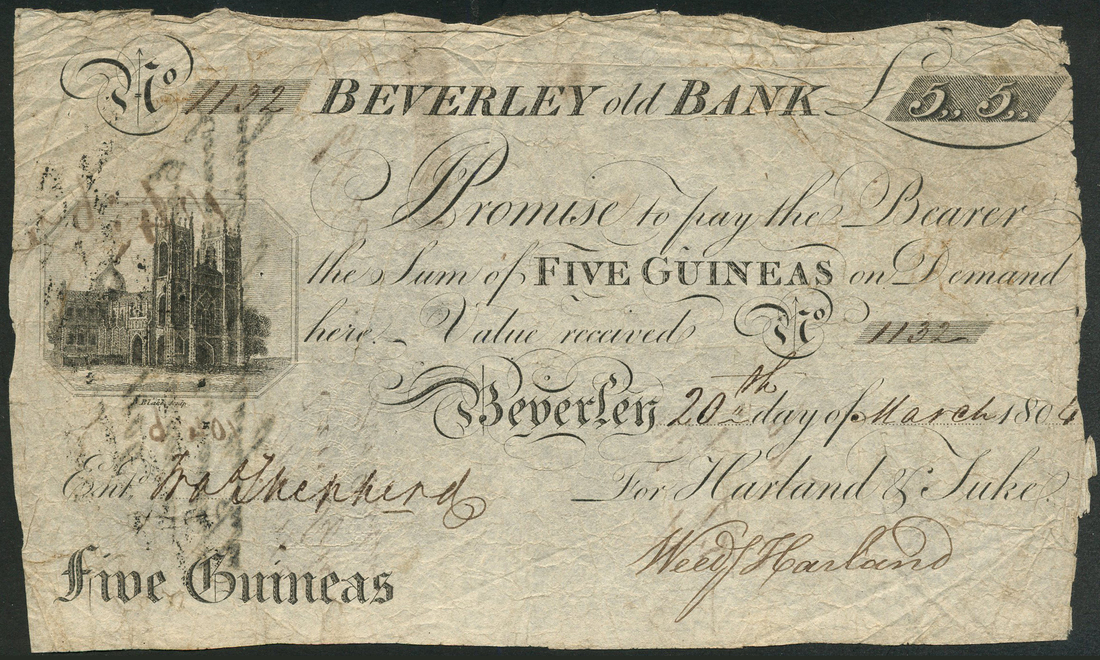 No 1132 BEVERLEY old BANK £5,, 5,,
Promise to pay the Bearer
the Sum of FIVE GUINEAS on Demand
here. Value received No 1132
Beverley 20th day of March 1804
Entd. Shepherd
For Harland & Tuke.
Harland
Five Guineas